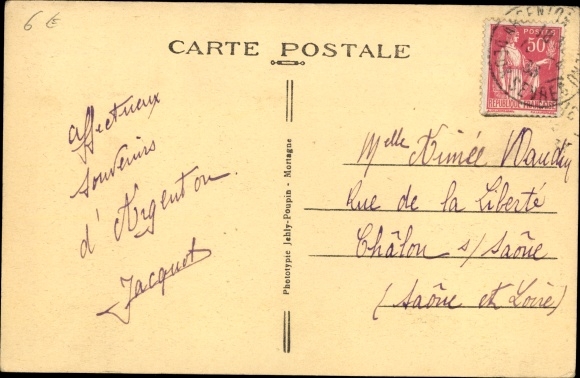 6 €
CARTE POSTALE
POSTES
50c
REPUBLIQUE FRANÇAISE
affectueux
souvenirs
d'Argenton.
Jacquot
Phototypie Jehly-Poupin - Mortagne
Melle Aimée
Rue de la Liberté
Châlon s/ Saône
(Saône et Loire)